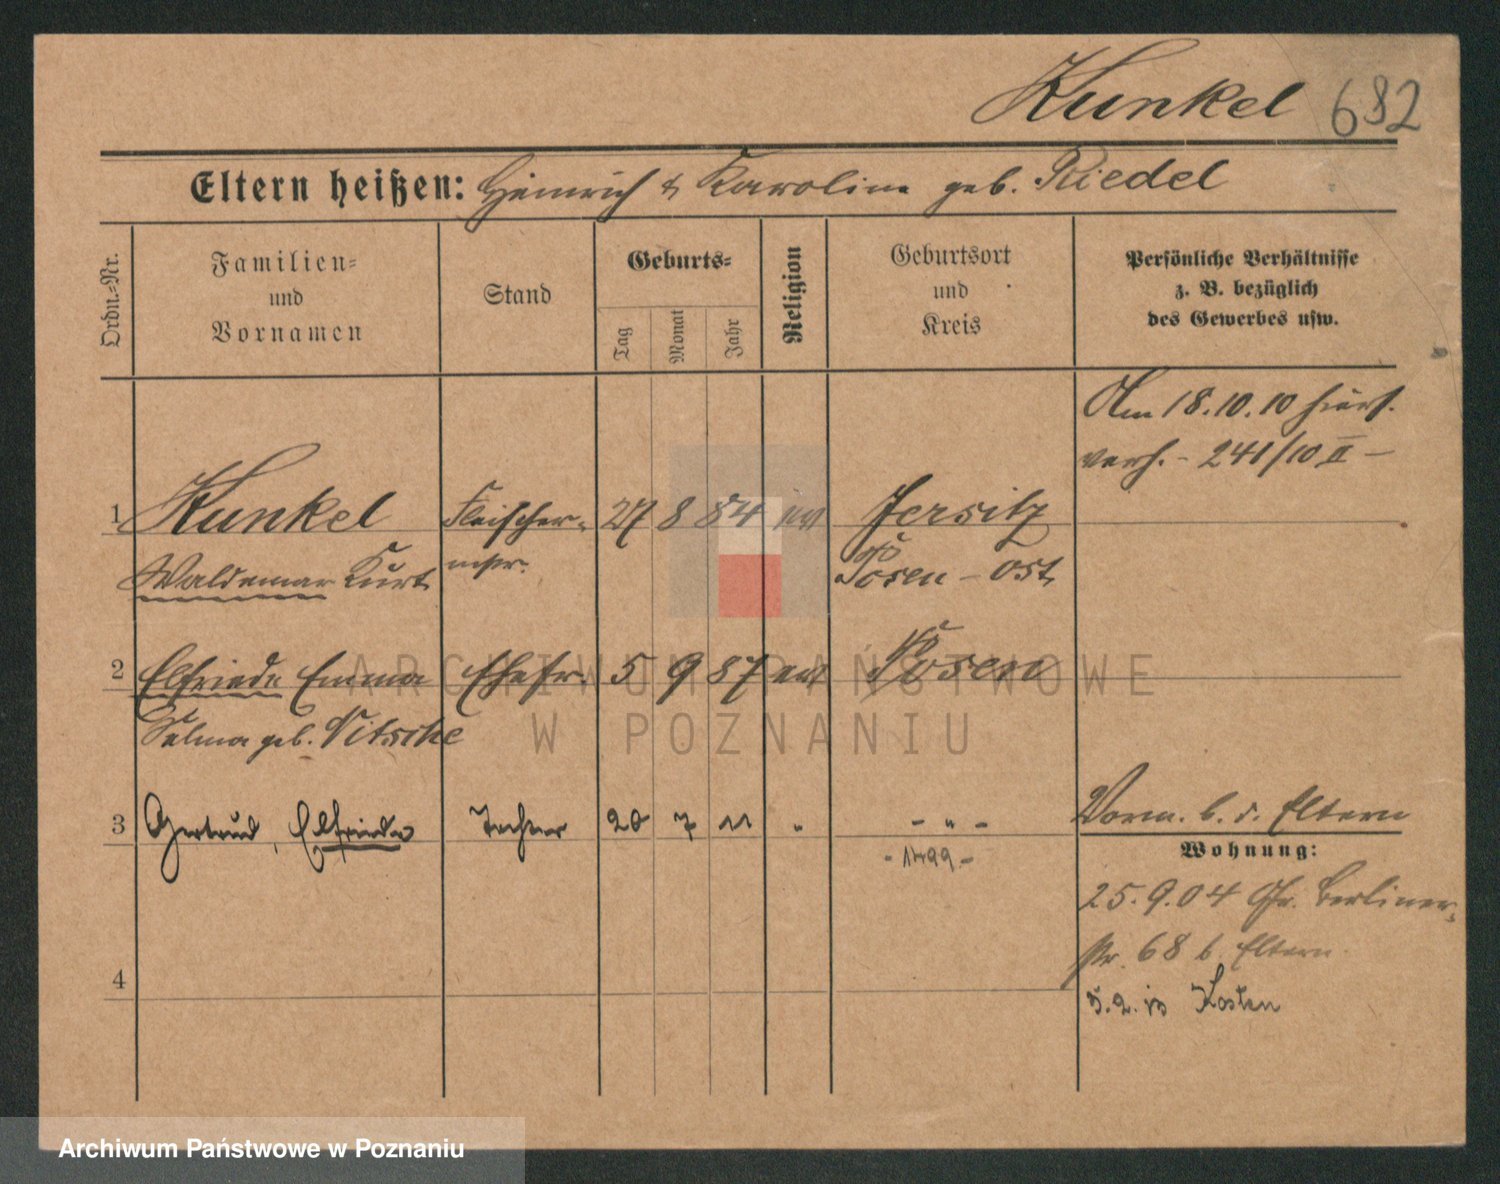 Kunkel 682
Eltern heißen: Heinrich & Karoline geb. Riedel
Ordn.-Nr.
Familien-
und
Vornamen
Stand
Geburts-
Tag
Monat
Jahr
Religion
Geburtsort
und
Kreis
Persönliche Verhältnisse
z. B. bezüglich
des Gewerbes usw.
Am 18.10.10 hiers.
verh. - 241/10 II -
1 Kunkel Fleischer- 27 8 84 ev Jersitz
Waldemar Kurt mstr. Posen - Ost
2 Elfriede Emma Ehefr. 5 9 87 ev Posen
Selma geb. Nitsche
3 Gertrud, Elfriede Tochter 20 7 11 " - " -
- 1499 -
Vorm. b. d. Eltern
Wohnung:
25.9.04 Gr. Berliner-
str. 68 b. Eltern
4
5.2. Kosten
ARCHIWUM PAŃSTWOWE
W POZNANIU
Archiwum Państwowe w Poznaniu